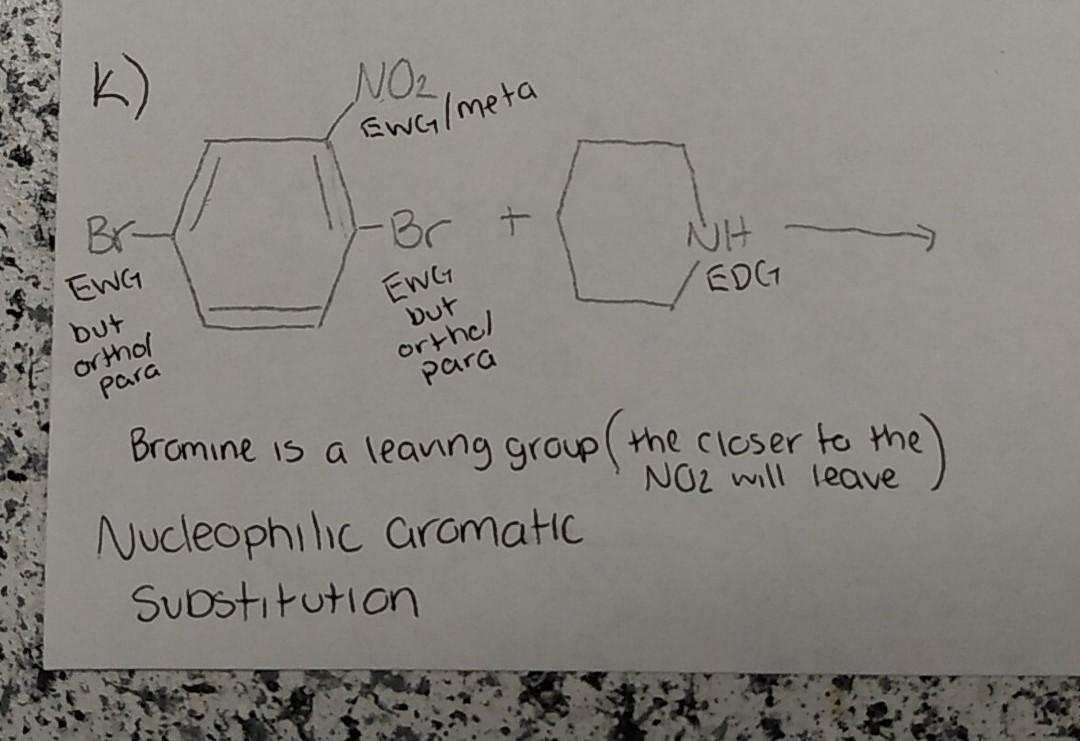 K)
NO2
EWG/meta
Br
EWG
but
ortho/
para
Br
EWG
but
ortho/
para
+
NH
EDG
Bromine is a leaving group (the closer to the
NO2 will leave)
Nucleophilic aromatic
Substitution